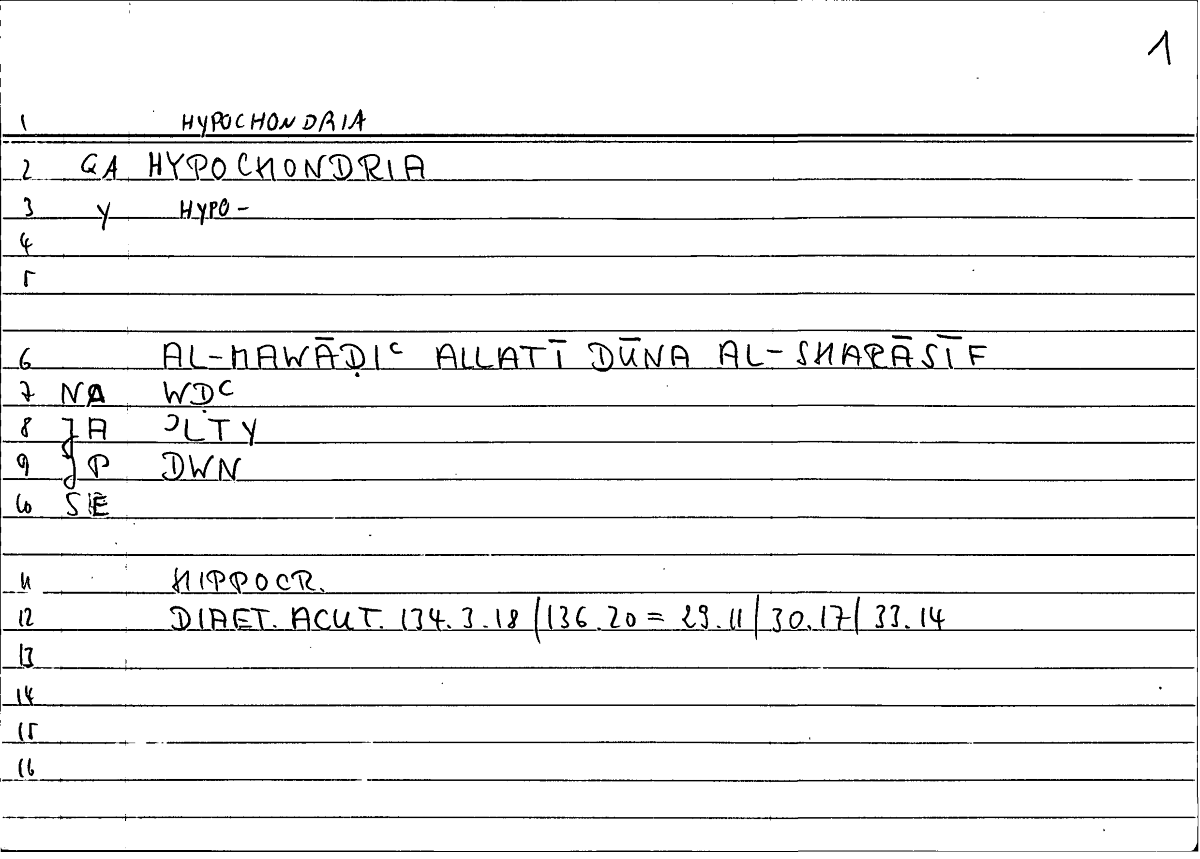 1
1 HYPOCHONDRIA
2 GA HYPOCHONDRIA
3 Y HYPO-
4
5
6 AL-MAWĀḌIᶜ ALLATĪ DŪNA AL-SHARĀSĪF
7 NA WḌᶜ
8 A ʾLTY
9 P DWN
10 SE
11 HIPPOCR.
12 DIAET. ACUT. 134.3.18 | 136.20 = 29.11 | 30.17 | 33.14
13
14
15
16